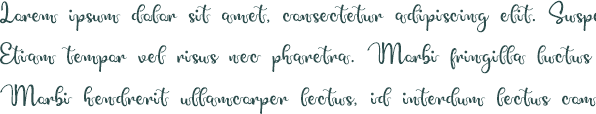 Lorem ipsum dolor sit amet, consectetur adipiscing elit. Suspe
Etiam tempor vel risus nec pharetra. Morbi fringilla luctus
Morbi hendrerit ullamcorper lectus, id interdum lectus com